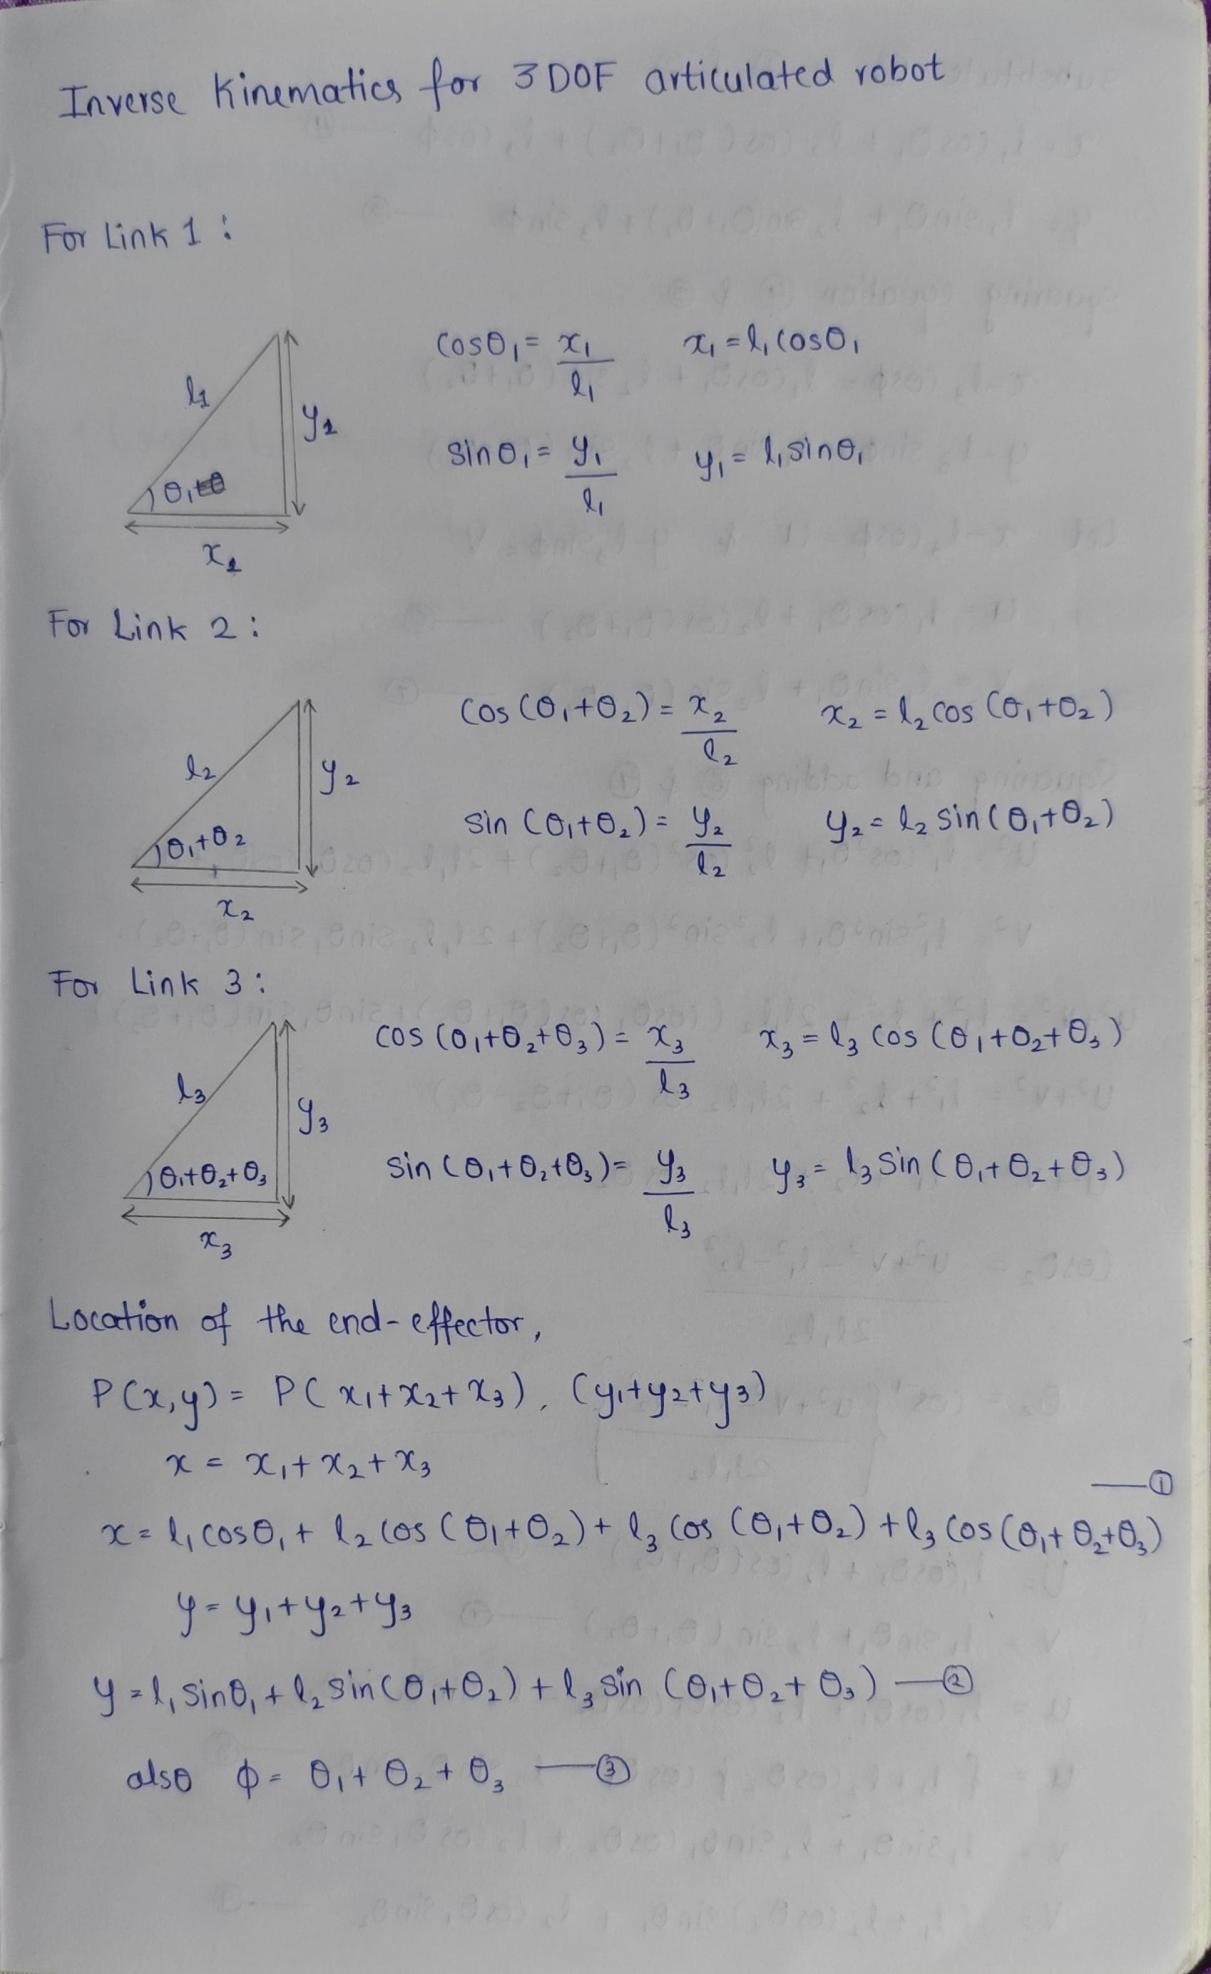 Inverse Kinematics for 3DOF articulated robot
For Link 1 :
cosθ₁ = x₁/l₁ x₁ = l₁cosθ₁
l₁
y₁
sinθ₁ = y₁/l₁ y₁ = l₁sinθ₁
θ₁
x₁
For Link 2 :
cos(θ₁+θ₂) = x₂/l₂ x₂ = l₂ cos(θ₁+θ₂)
l₂
y₂
sin(θ₁+θ₂) = y₂/l₂ y₂ = l₂ sin(θ₁+θ₂)
θ₁+θ₂
x₂
For Link 3 :
cos(θ₁+θ₂+θ₃) = x₃/l₃ x₃ = l₃ cos(θ₁+θ₂+θ₃)
l₃
y₃
sin(θ₁+θ₂+θ₃) = y₃/l₃ y₃ = l₃ sin(θ₁+θ₂+θ₃)
θ₁+θ₂+θ₃
x₃
Location of the end-effector,
P(x,y) = P(x₁+x₂+x₃), (y₁+y₂+y₃)
x = x₁+x₂+x₃
—①
x = l₁cosθ₁ + l₂cos(θ₁+θ₂) + l₃cos(θ₁+θ₂) + l₃cos(θ₁+θ₂+θ₃)
y = y₁+y₂+y₃
y = l₁sinθ₁ + l₂sin(θ₁+θ₂) + l₃sin(θ₁+θ₂+θ₃) —②
also ϕ = θ₁+θ₂+θ₃ —③